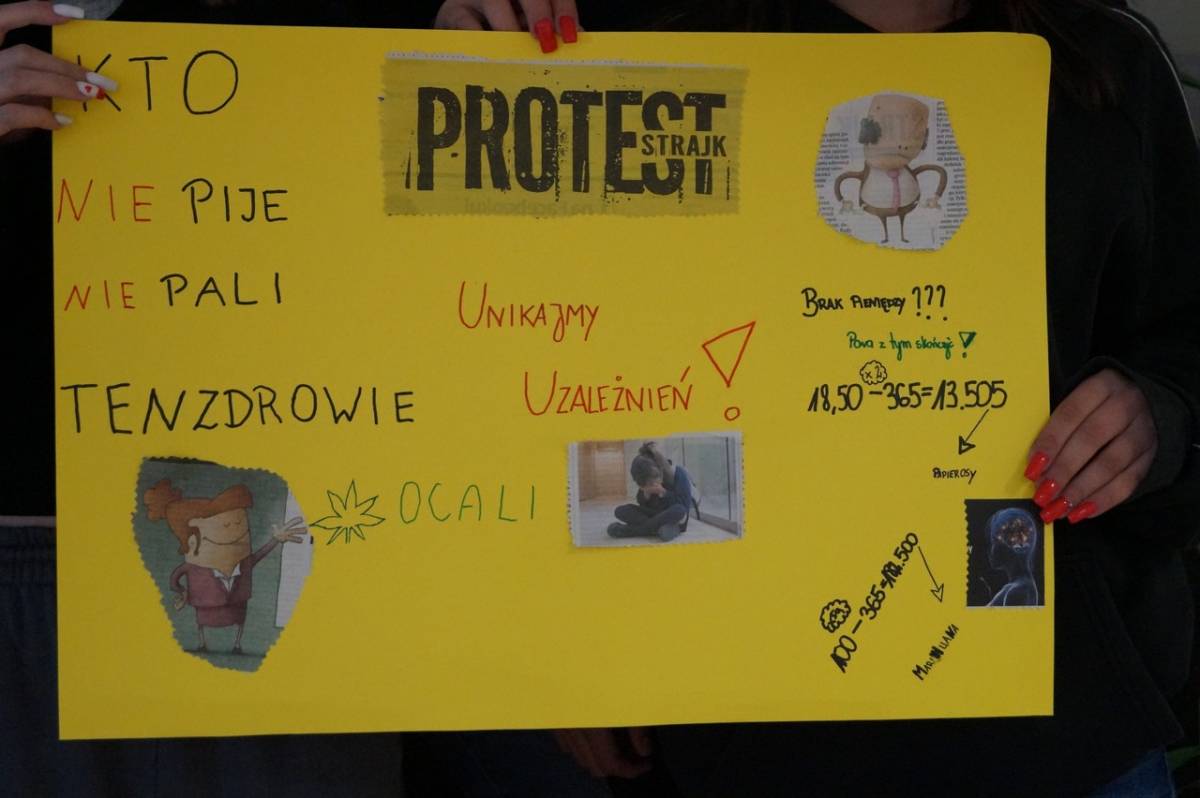 KTO
NIE PIJE
NIE PALI
TEN ZDROWIE
OCALI
PROTEST
STRAJK
UNIKAJMY
UZALEŻNIEŃ !
BRAK PIENIĘDZY ???
Pora z tym skończyć !
x 2
18,50 – 365 = 13.505
PAPIEROSY
100 – 365 =
MARIHUANA